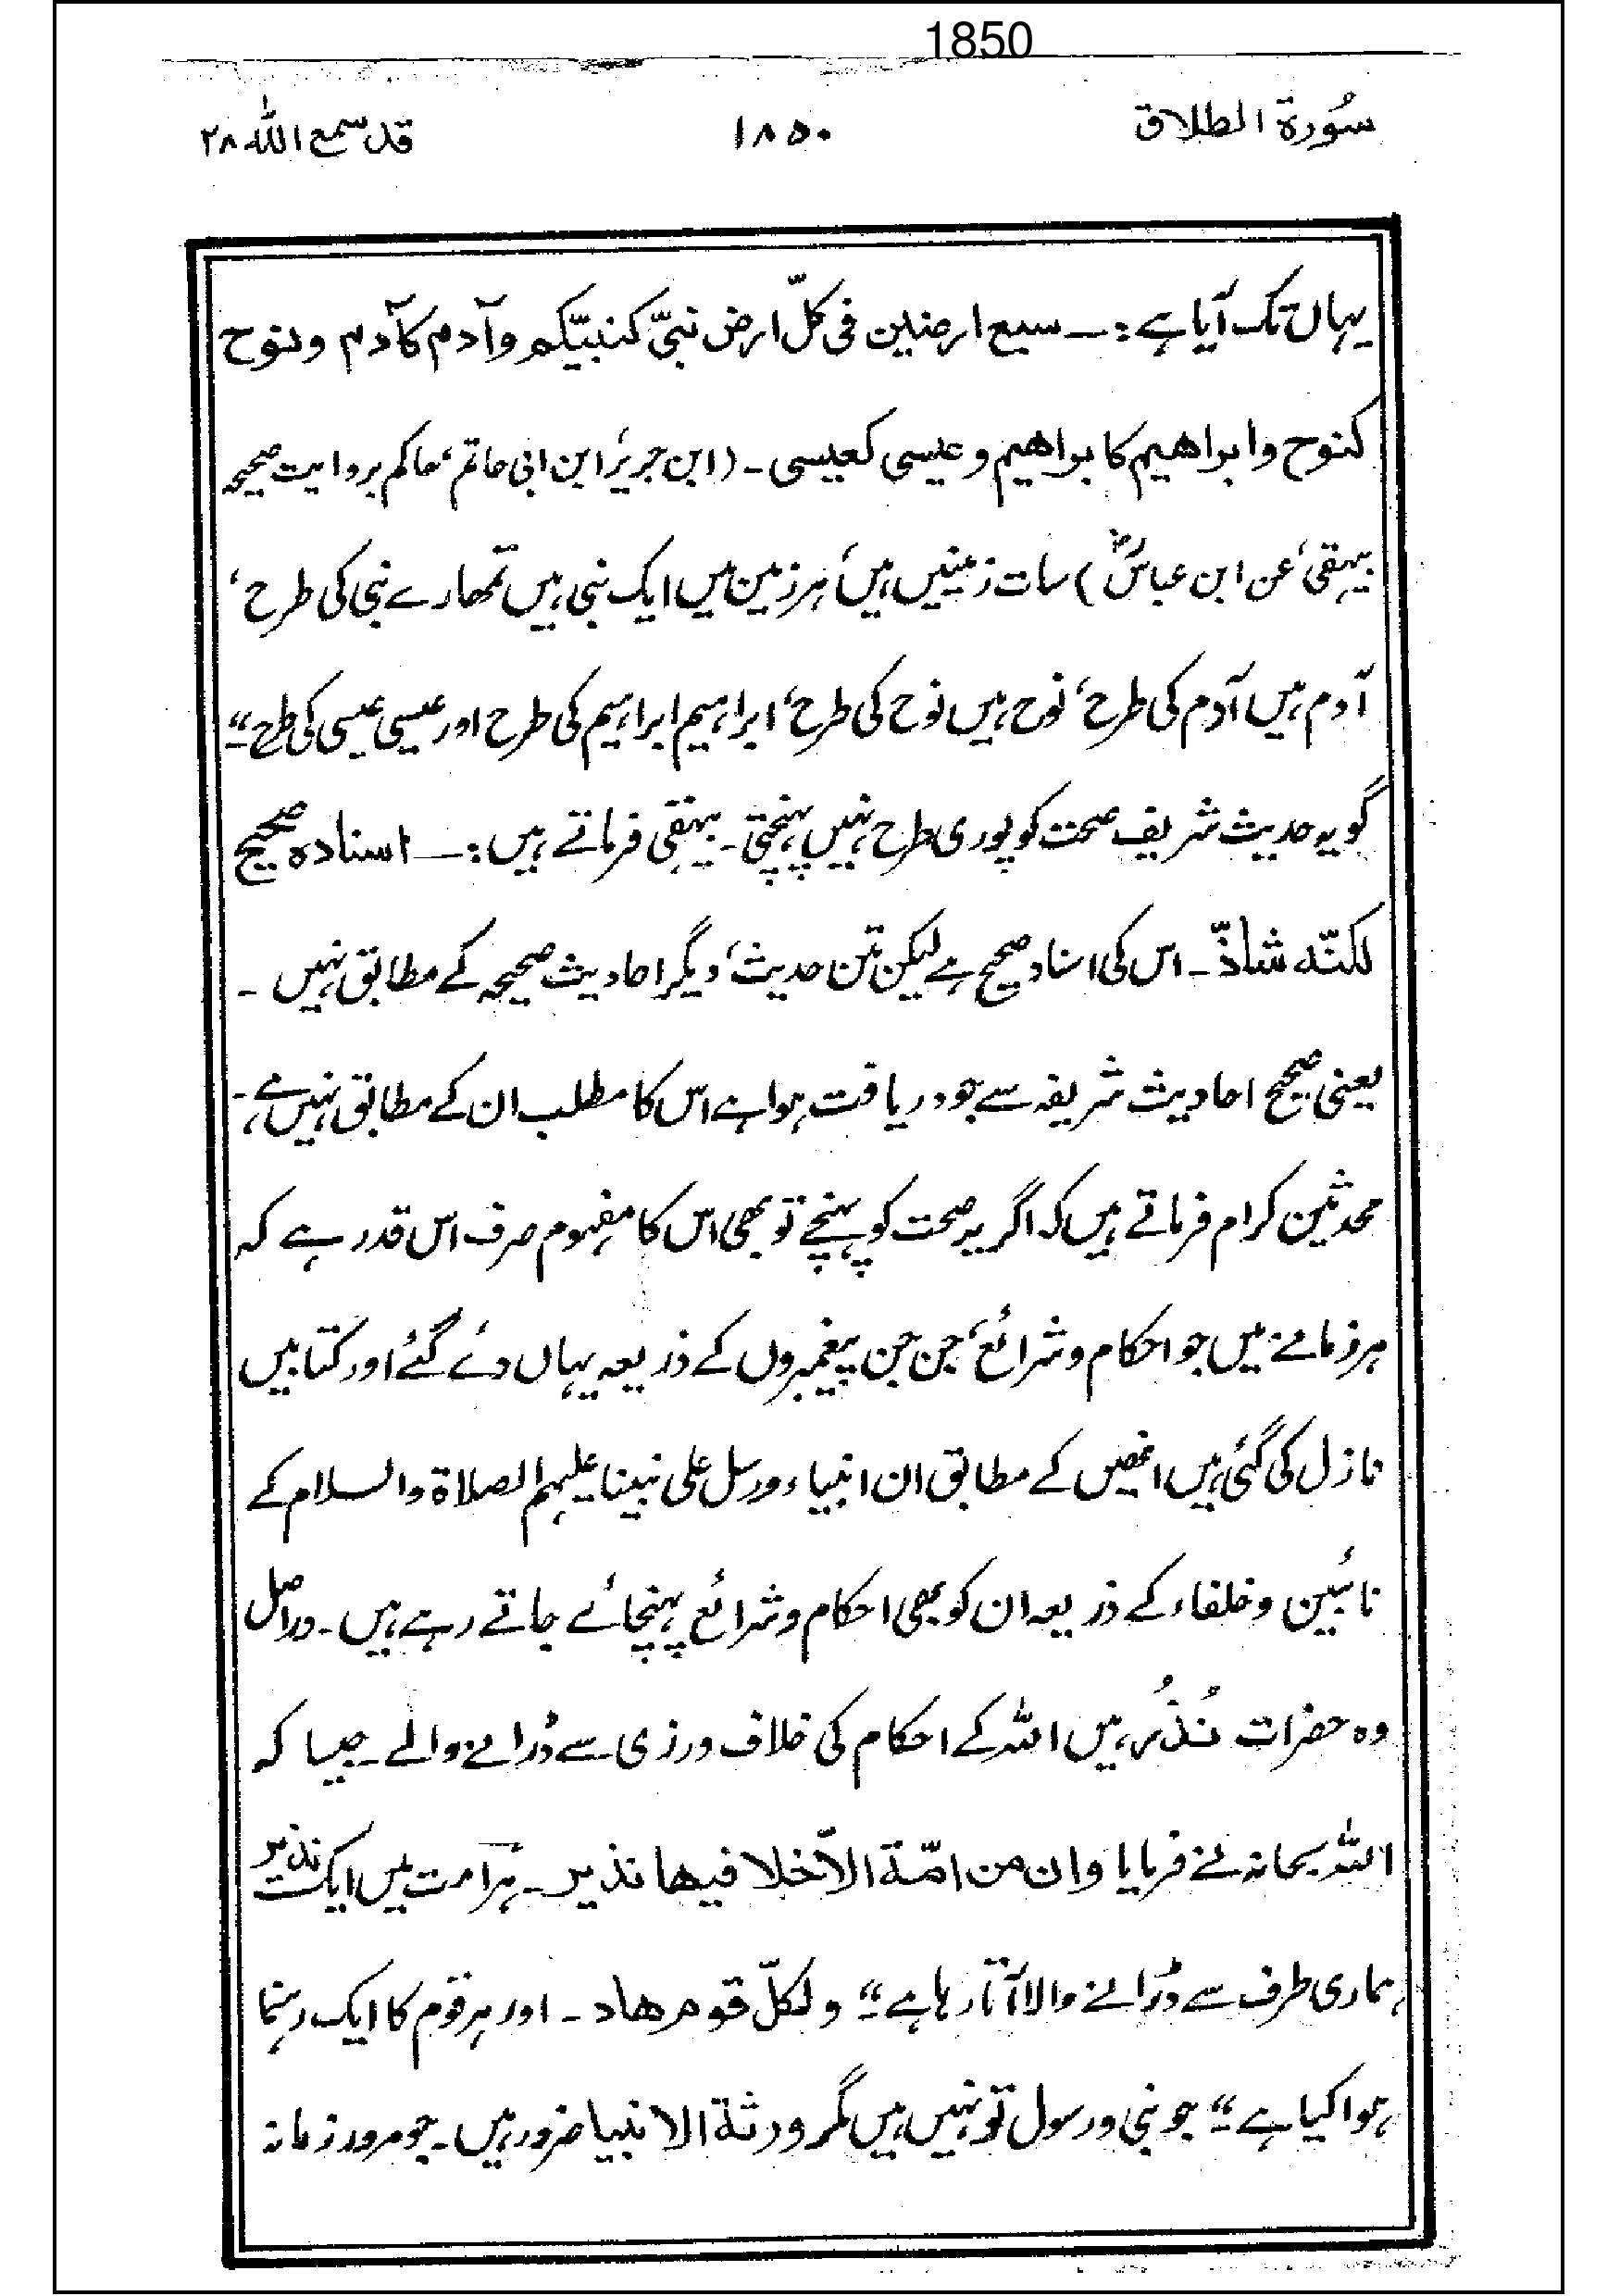 1850
سُورة الطلاق ۱۸۵۰ قد سمع اللہ ۲۸
یہاں تک آیا ہے :۔ سبع ارضین فی کلّ ارض نبیّ کنبیّکم وآدم کآدم ونوح
کنوح وابراھیم کابراھیم وعیسی کعیسی ۔ (ابن جریر، ابن ابی حاتم، حاکم بروایت صحیحہ
بیہقی، عن ابن عباسؓ) سات زمینیں ہیں، ہر زمین میں ایک نبی ہیں تمھارے نبی کی طرح،
آدم ہیں آدم کی طرح، نوح ہیں نوح کی طرح، ابراہیم ابراہیم کی طرح اور عیسی عیسی کی طرح"۔
گو یہ حدیث شریف صحت کو پوری طرح نہیں پہنچتی ۔ بیہقی فرماتے ہیں :۔ اسنادہ صحیح
لکنّه شاذّ ۔ اس کی اسناد صحیح ہے لیکن متن حدیث، دیگر احادیث صحیحہ کے مطابق نہیں ۔
یعنی صحیح احادیث شریفہ سے جو دریافت ہوا ہے اس کا مطلب ان کے مطابق نہیں ہے ۔
محدثین کرام فرماتے ہیں کہ اگر یہ صحت کو پہنچے تو بھی اس کا مفہوم صرف اس قدر ہے کہ
ہر زمانے میں جو احکام و شرائع، جن جن پیغمبروں کے ذریعہ یہاں دئے گئے اور کتابیں
نازل کی گئی ہیں انھیں کے مطابق ان انبیاء و رسل علی نبینا علیہم الصلاۃ والسلام کے
نائبین و خلفاء کے ذریعہ ان کو بھی احکام و شرائع پہنچائے جاتے رہے ہیں ۔ دراصل
وہ حضرات نُذُر ہیں اللہ کے احکام کی خلاف ورزی سے ڈرانے والے ۔ جیسا کہ
اللہ سبحانہ نے فرمایا وان من امّة الاّ خلا فیھا نذیر ۔ ہر امت میں ایک نذیر
ہماری طرف سے ڈرانے والا آتا رہا ہے"۔ ولکلّ قوم ھاد ۔ اور ہر قوم کا ایک رہنما
ہوا کیا ہے"۔ جو نبی و رسول تو نہیں ہیں مگر ورثة الانبیا ضرور ہیں ۔ جو مرور زمانہ